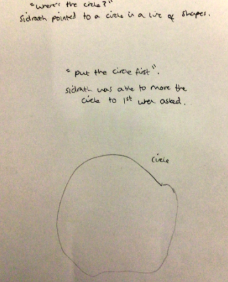 "where's the circle?"
Sidrath pointed to a circle in a line of shapes.
"put the circle first".
Sidrath was able to move the
circle to 1st when asked.
circle